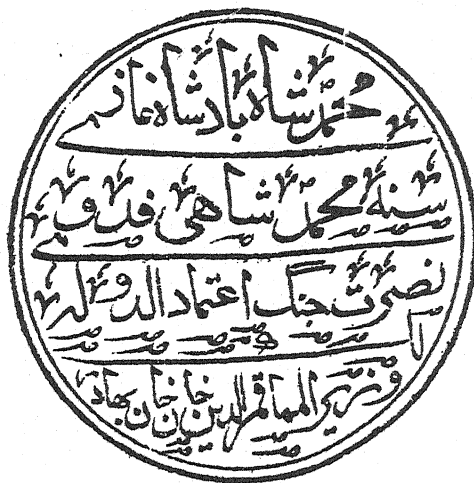 محمد شاه بادشاه غازی
سنه محمد شاهی فدوی
نصرت جنگ اعتماد الدوله
وزیر الممالک قمرالدین خان خان بهادر